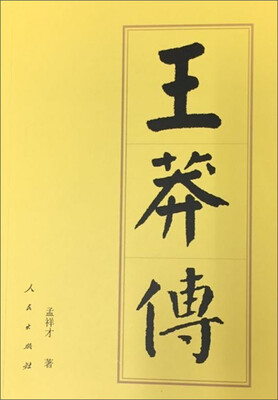 王莽傳
孟祥才 著
人民出版社